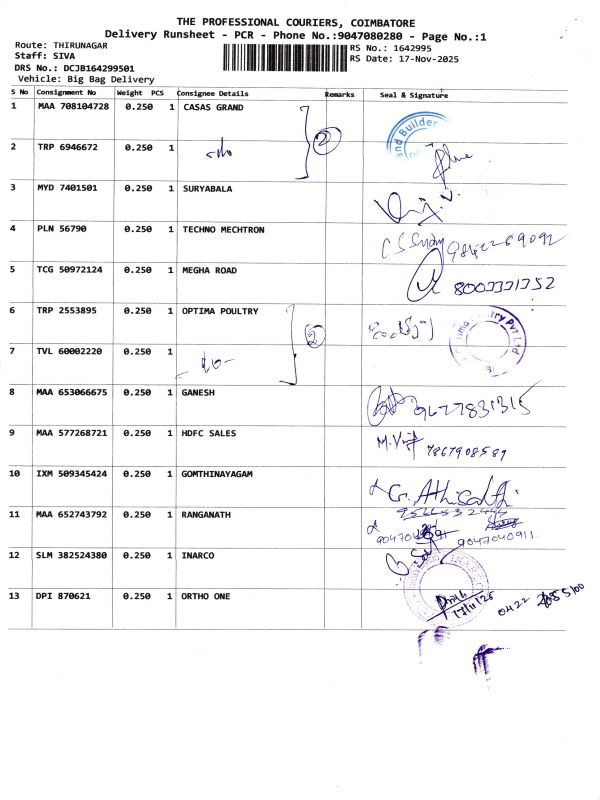 THE PROFESSIONAL COURIERS, COIMBATORE
Delivery Runsheet - PCR - Phone No.:9047080280 - Page No.:1
Route: THIRUNAGAR
RS No.: 1642995
Staff: SIVA
RS Date: 17-Nov-2025
DRS No.: DCJB164299501
Vehicle: Big Bag Delivery
S No Consignment No Weight PCS Consignee Details Remarks Seal & Signature
1 MAA 708104728 0.250 1 CASAS GRAND
2 TRP 6946672 0.250 1 -do- 2
3 MYD 7401501 0.250 1 SURYABALA
4 PLN 56790 0.250 1 TECHNO MECHTRON
5 TCG 50972124 0.250 1 MEGHA ROAD
6 TRP 2553895 0.250 1 OPTIMA POULTRY
7 TVL 60002220 0.250 1 -do- 2
8 MAA 653066675 0.250 1 GANESH 9677831315
9 MAA 577268721 0.250 1 HDFC SALES 7867908589
10 IXM 509345424 0.250 1 GOMTHINAYAGAM
11 MAA 652743792 0.250 1 RANGANATH 9047040911
12 SLM 382524380 0.250 1 INARCO
13 DPI 870621 0.250 1 ORTHO ONE 17/11/25 0422